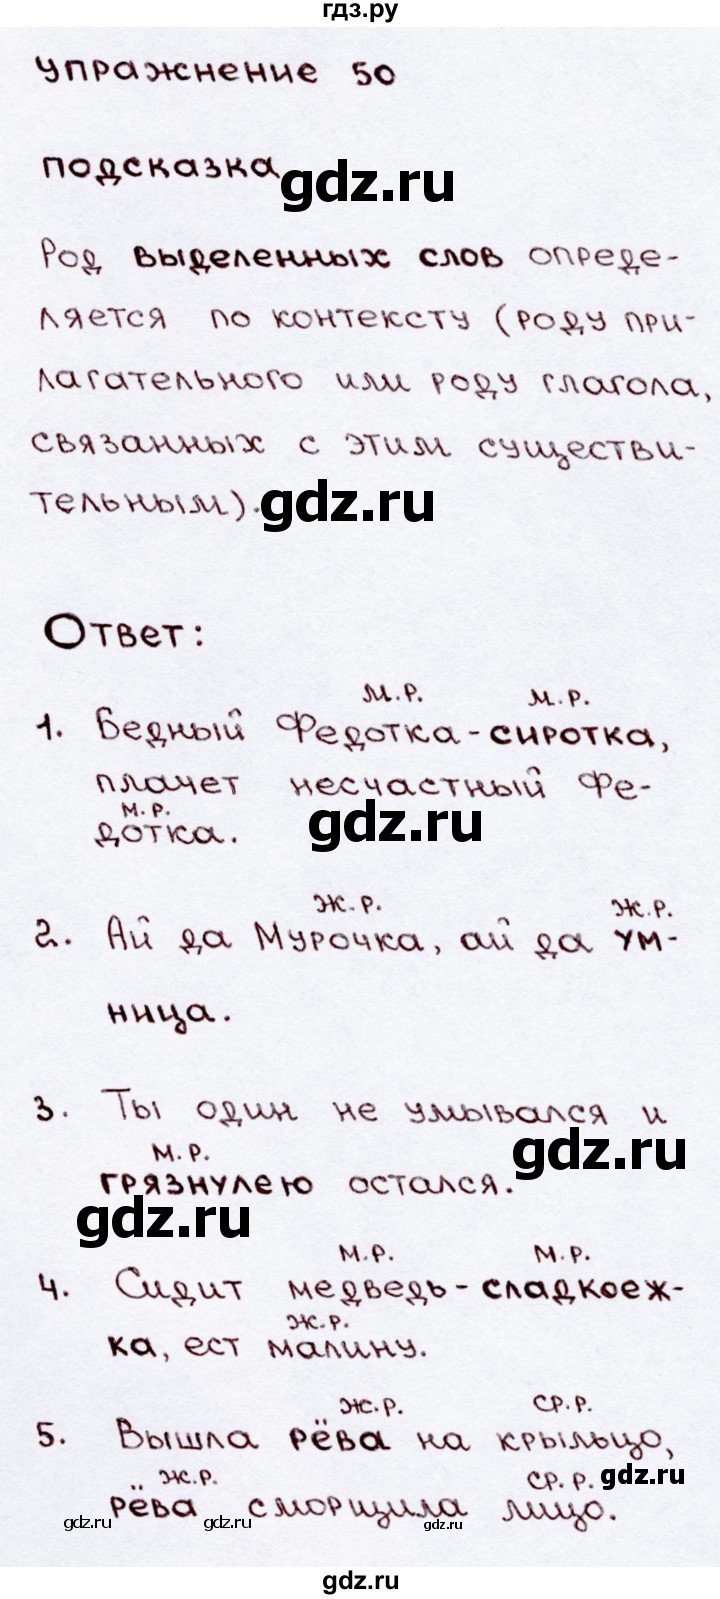 гдз.ру
Упражнение 50
подсказка
gdz.ru
Род выделенных слов опреде-
ляется по контексту (роду при-
лагательного или роду глагола,
связанных с этим существи-
тельным).
gdz.ru
Ответ:
м.р. м.р.
1. Бедный Федотка-сиротка,
плачет несчастный Фе-
м.р.
дотка.
gdz.ru
ж.р. ж.р.
2. Ай да Мурочка, ай да ум-
ница.
3. Ты один не умывался и
gdz.ru
м.р.
грязнулею остался.
gdz.ru
м.р. м.р.
4. Сидит медведь-сладкоеж-
ж.р.
ка, ест малину.
ж.р. ср.р.
5. Вышла рёва на крыльцо,
ж.р. ср.р. gdz.ru
рёва сморщила лицо.
gdz.ru gdz.ru gdz.ru
gdz.ru